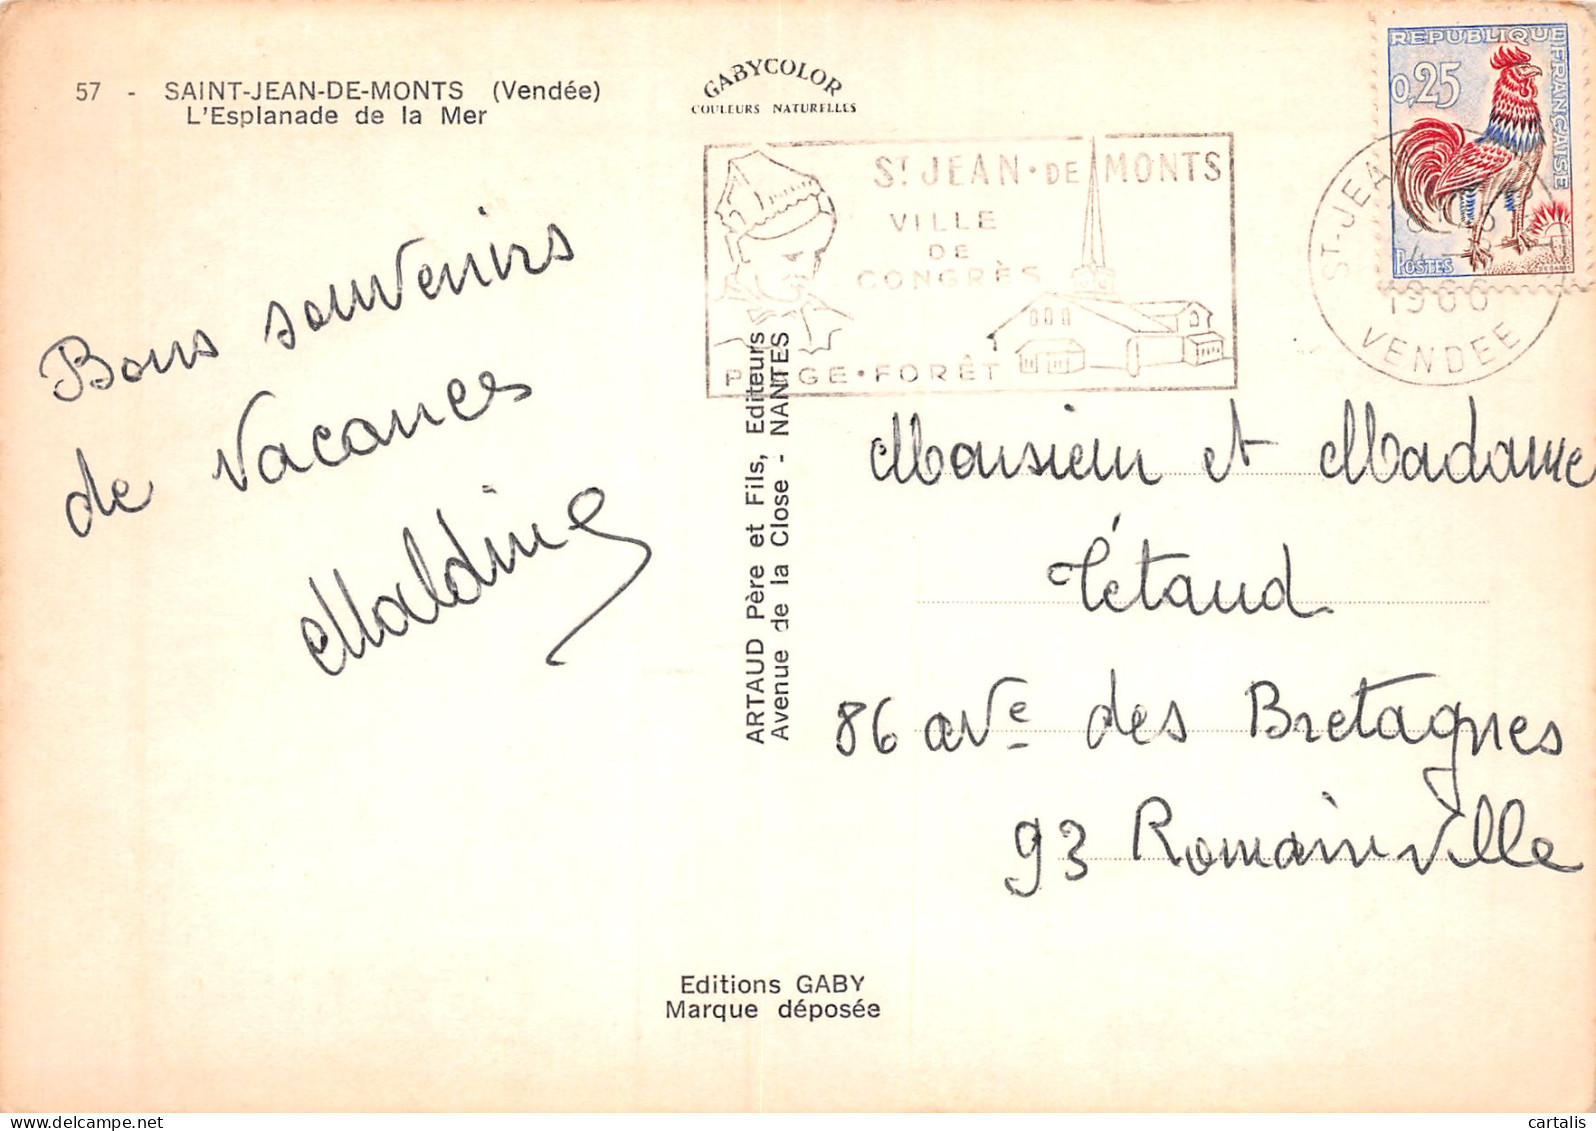 57 - SAINT-JEAN-DE-MONTS (Vendée)
L'Esplanade de la Mer
GABYCOLOR
COULEURS NATURELLES
REPUBLIQUE FRANÇAISE
0,25
POSTES
ST JEAN · DE MONTS
VILLE
DE
CONGRÈS
PLAGE · FORÊT
ST-JEAN
1966
VENDEE
Bons souvenirs
de Vacances
ARTAUD Père et Fils, Editeurs
Avenue de la Close - NANTES
Monsieur et Madame
Tétaud
86 avᵉ des Bretagnes
93 Romainville
Editions GABY
Marque déposée
cartalis